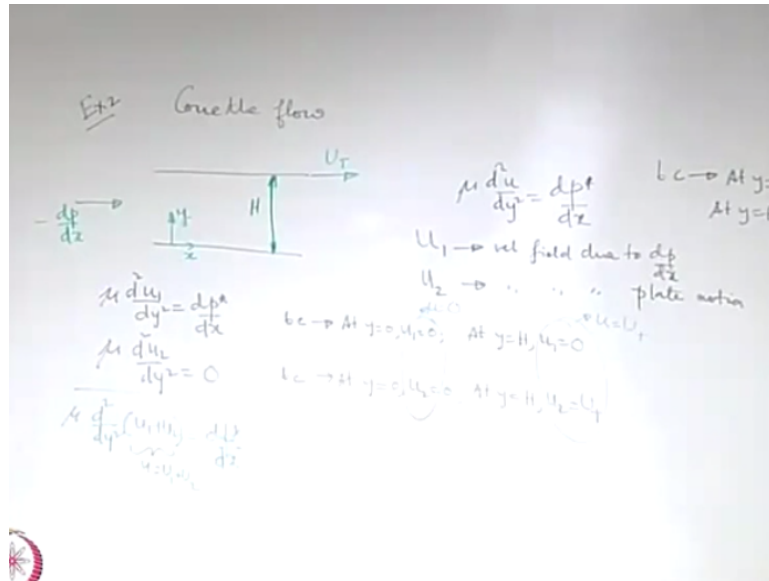 Ex2 Couette flow
U_T
H
y
x
- dp/dx
μ d²u/dy² = dp*/dx
bc → At y=
At y=H
u₁ → vel field due to dp/dx
u₂ → " " " plate motion
μ d²u₁/dy² = dp*/dx
bc → At y=0, u₁=0; At y=H, u₁=0
u=U_T
μ d²u₂/dy² = 0
bc → At y=0, u₂=0 At y=H, u₂=U_T
μ d²/dy² (u₁+u₂) = dp*/dx
u=u₁+u₂